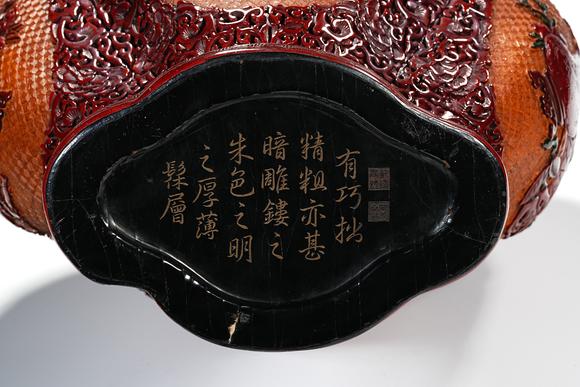 髹層
之厚薄
朱色之明
暗雕鏤之
精粗亦甚
有巧拙